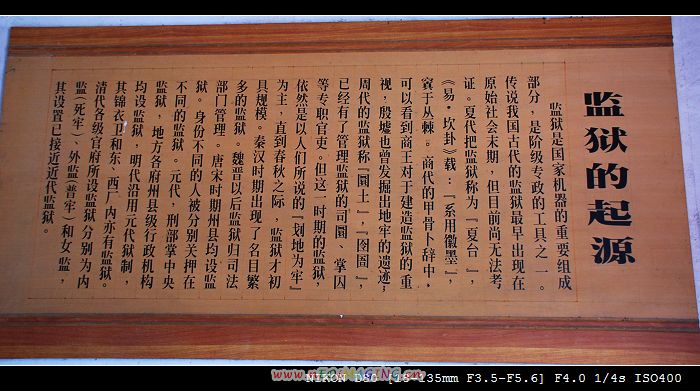 监狱的起源
监狱是国家机器的重要组成
部分，是阶级专政的工具之一。
传说我国古代的监狱最早出现在
原始社会末期，但目前尚无法考
证。夏代把监狱称为『夏台』，
《易·坎卦》载：『系用徽墨』，
寘于丛棘。商代的甲骨卜辞中，
可以看到商王对于建造监狱的重
视，殷墟也曾发掘出地牢的遗迹；
周代的监狱称『圜土』，『囹圄』，
已经有了管理监狱的司圜、掌囚
等专职官吏。但这一时期的监狱，
依然是以人们所说的『划地为牢』
为主，直到春秋之际，监狱才初
具规模。秦汉时期出现了名目繁
多的监狱。魏晋以后监狱归司法
部门管理。唐宋时期州县均设监
狱。身份不同的人被分别关押在
不同的监狱。元代，刑部掌中央
监狱，地方各府州县级行政机构
均设监狱，明代沿用元代狱制，
其锦衣卫和东、西厂内亦有监狱。
清代各级官府所设监狱分别为内
监（死牢）、外监（普牢）和女监，
其设置已接近近代监狱。
NIKON D80 [18-135mm F3.5-F5.6] F4.0 1/4s ISO400